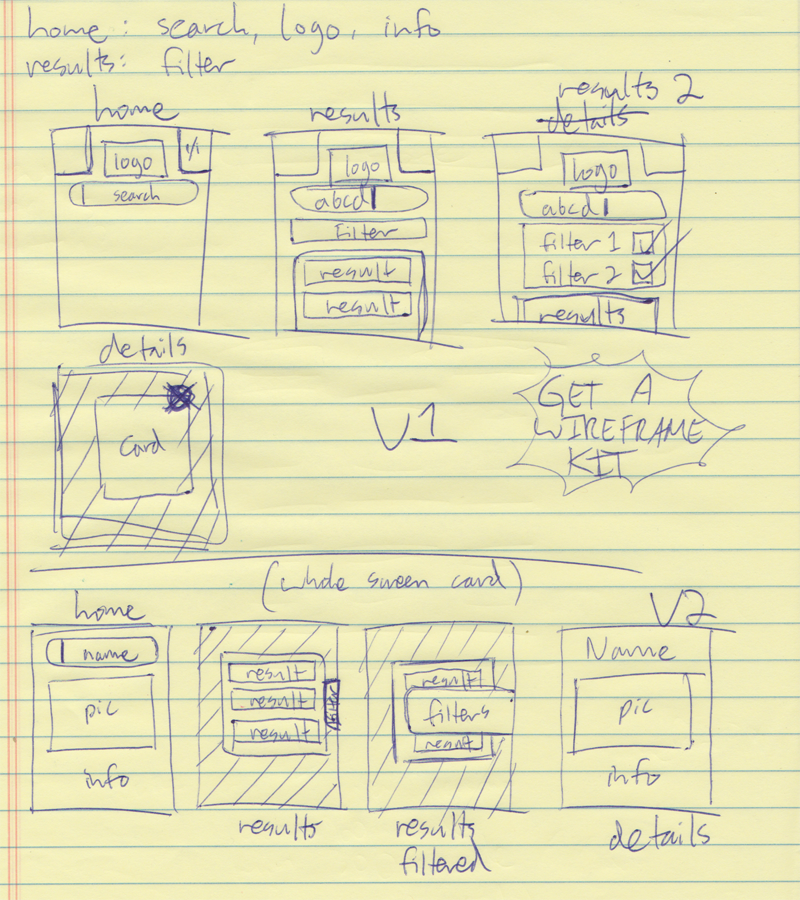 home: search, logo, info
results: filter
home
logo
search
results
logo
abcd
Filter
result
result
results 2
details
logo
abcd
filter 1
filter 2
results
details
card
V1
GET A
WIREFRAME
KIT
(whole screen card)
V2
home
name
pic
info
result
result
result
filter
results
result
filters
result
results
filtered
Name
pic
info
details